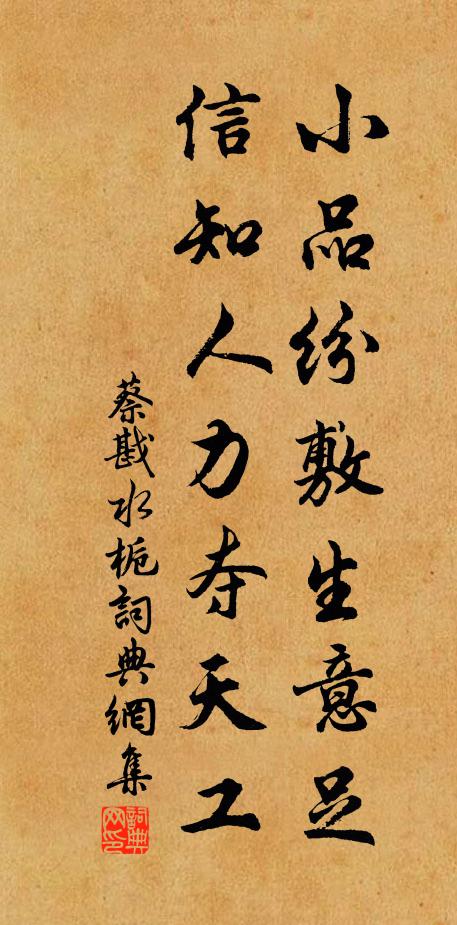 小品纷敷生意足
信知人力夺天工
蔡戡水栀詞典網集
詞典网印